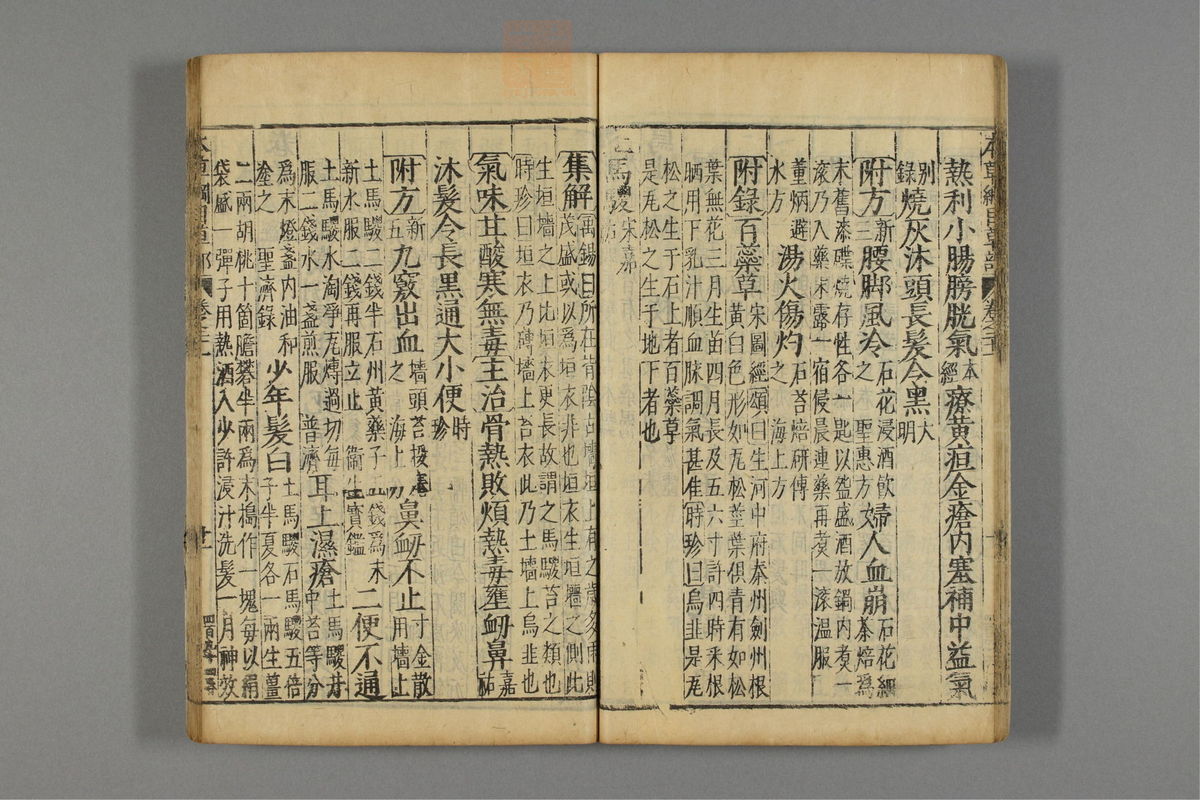 熱利小腸膀胱氣本經療黃疸金瘡内塞補中益氣
别錄燒灰沐頭長髮令黑大明
附方新三腰脚風冷石花浸酒飲之聖惠方婦人血崩石花細茶焙爲
末舊漆碟燒存性各一匙以盌盛酒放鍋内煑一
滚乃入藥末露一宿侵晨連藥再煑一滚温服
董炳避水方湯火傷灼石苔焙研傅之海上方
附錄百蘂草宋圖經頌曰生河中府秦州劍州根
黃白色形如瓦松莖葉俱青有如松
葉無花三月生苗四月長及五六寸許四時采根
晒用下乳汁順血脉調氣甚佳時珍曰烏韭是瓦
松之生于石上者百蘂草
是瓦松之生于地下者也
土馬騣宋嘉
集解禹錫曰所在背陰古墻垣上有之歲多雨則
茂盛或以爲垣衣非也垣衣生垣墻之側此
生垣墻之上比垣衣更長故謂之馬騣苔之類也
時珍曰垣衣乃磚墻上苔衣此乃土墻上烏韭也
氣味甘酸寒無毒主治骨熱敗煩熱毒壅衄鼻嘉祐
沐髮令長黑通大小便時珍
附方新五九竅出血墻頭苔挼塞之海上方鼻衄不止寸金散用墻上
土馬騣二錢半石州黃藥子五錢爲末
新水服二錢再服立止衛生寶鑑二便不通
土馬騣水淘淨瓦煿過切每
服一錢水一盞煎服普濟耳上濕瘡土馬騣井中苔等分
爲末燈盞内油和
塗之聖濟錄少年髮白土馬騣石馬騣五倍子半夏各一兩生薑
二兩胡桃十箇膽礬半兩爲末搗作一塊每以絹
袋盛一彈子用熱酒入少許浸汁洗髮一月神效
本草綱目草部 卷之二十一